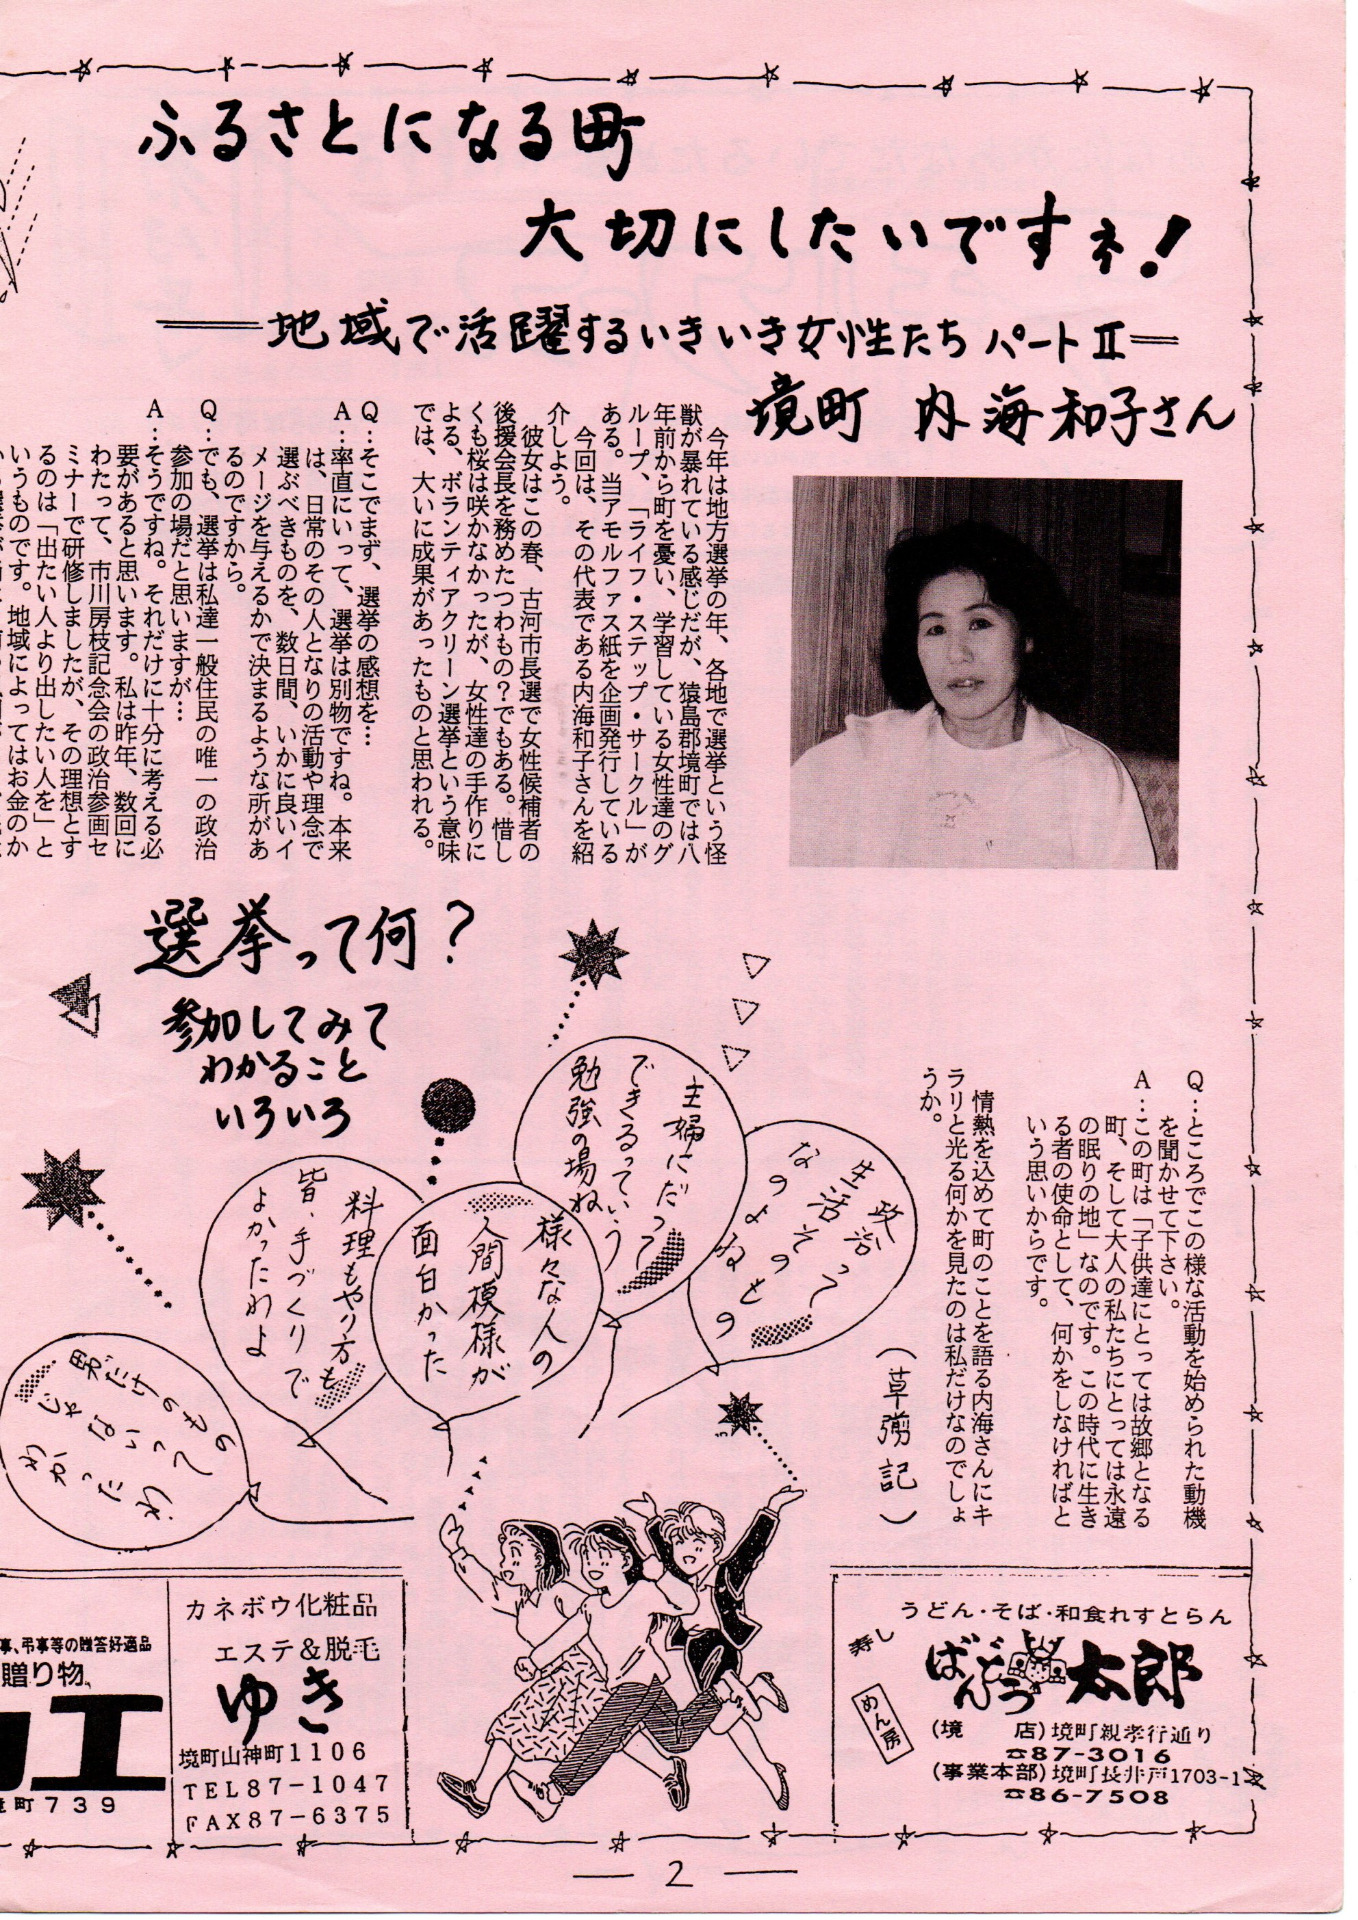 ふるさとになる町
大切にしたいですネ!
地域で活躍するいきいき女性たち パートⅡ
境町 内海和子さん
今年は地方選挙の年、各地で選挙という怪
獣が暴れている感じだが、猿島郡境町では八
年前から町を憂い、学習している女性達のグ
ループ、「ライフ・ステップ・サークル」が
ある。当アモルファス紙を企画発行している
今回は、その代表である内海和子さんを紹
介しよう。
彼女はこの春、古河市長選で女性候補者の
後援会長を務めたつわもの?でもある。惜し
くも桜は咲かなかったが、女性達の手作りに
よる、ボランティアクリーン選挙という意味
では、大いに成果があったものと思われる。
Q…そこでまず、選挙の感想を…
A…率直にいって、選挙は別物ですね。本来
は、日常のその人となりの活動や理念で
選ぶべきものを、数日間、いかに良いイ
メージを与えるかで決まるような所があ
るのですから。
Q…でも、選挙は私達一般住民の唯一の政治
参加の場だと思いますが…
A…そうですね。それだけに十分に考える必
要があると思います。私は昨年、数回に
わたって、市川房枝記念会の政治参画セ
ミナーで研修しましたが、その理想とす
るのは「出たい人より出したい人を」と
いうものです。地域によってはお金のか
Q…ところでこの様な活動を始められた動機
を聞かせて下さい。
A…この町は「子供達にとっては故郷となる
町、そして大人の私たちにとっては永遠
の眠りの地」なのです。この時代に生き
る者の使命として、何かをしなければと
いう思いからです。
情熱を込めて町のことを語る内海さんにキ
ラリと光る何かを見たのは私だけなのでしょ
うか。
選挙って何?
参加してみて
わかること
いろいろ
政治って
生活そのもの
なのよね
主婦にだって
できるっていう
勉強の場ね
様々な人の
人間模様が
面白かった
料理もやり方も
皆、手づくりで
よかったわよ
男だけのもの
じゃないって
カネボウ化粧品
エステ&脱毛
ゆき
境町山神町1106
TEL87-1047
FAX87-6375
事、弔事等の贈答好適品
贈り物、
エ
町739
うどん・そば・和食れすとらん
寿し
めん房
ばんどう太郎
(境 店)境町親孝行通り
☎87-3016
(事業本部)境町長井戸1703-1
☎86-7508
2